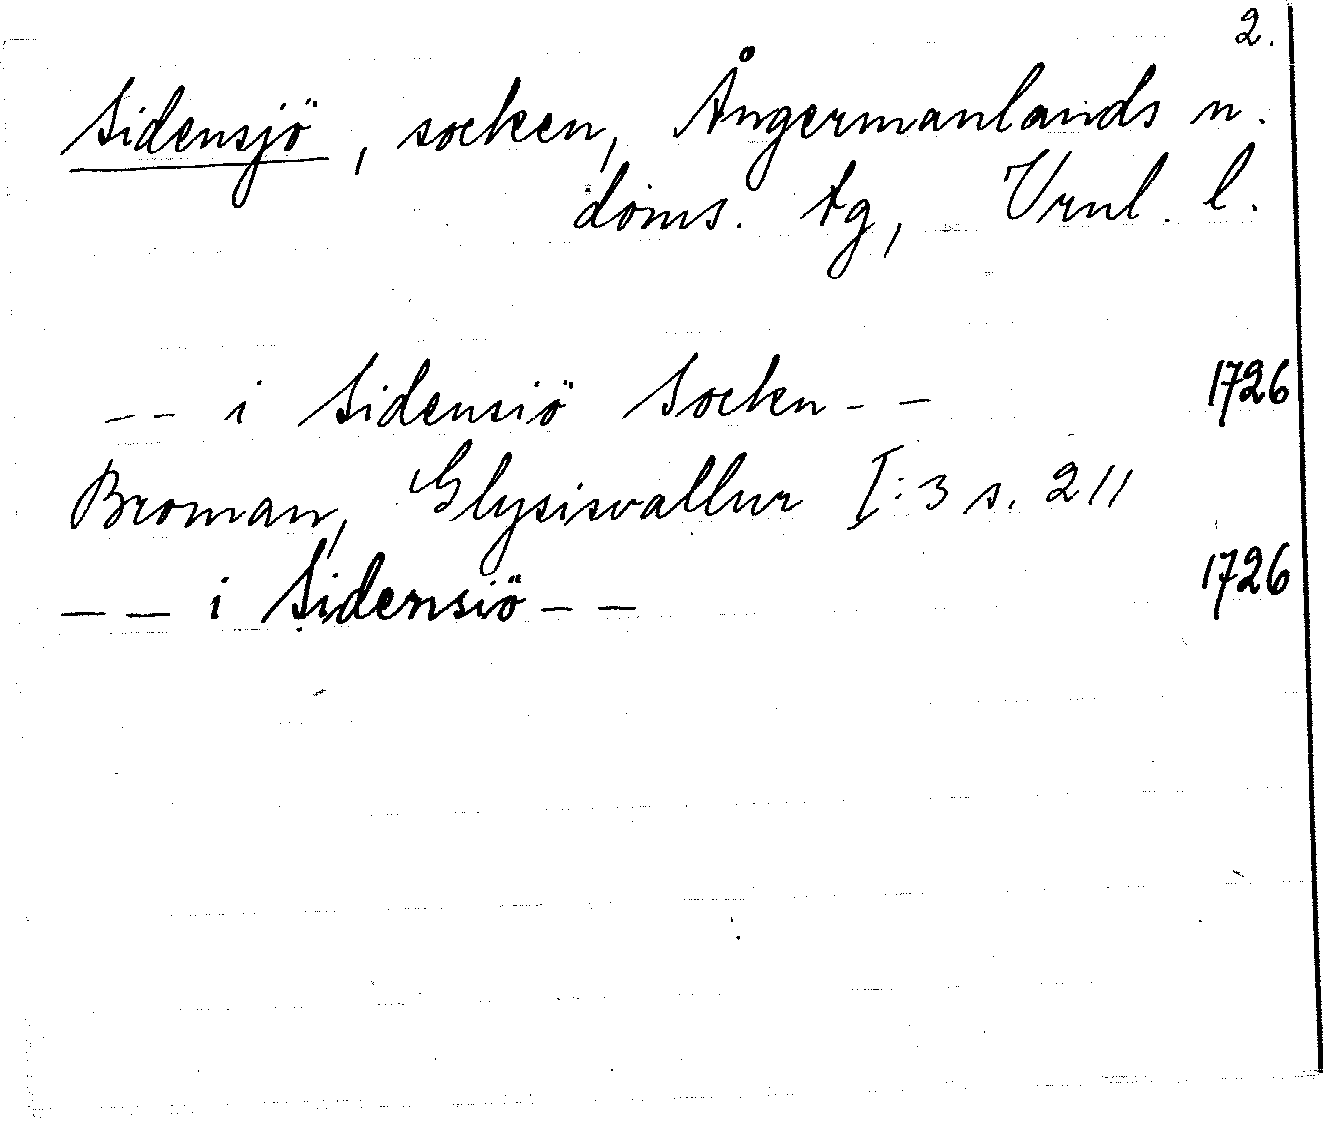 2.
Sidensjö, socken, Ångermanlands n.
doms. tg, Vrnl. l.
-- i Sidensiö Socken -- 1726
Broman, Glysisvallur I:3 s. 211
-- i Sidensiö -- 1726